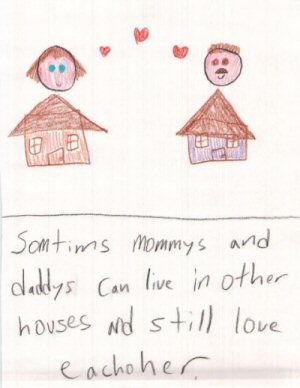 Somtims Mommys and
daddys Can live in other
houses and still love
eachoher